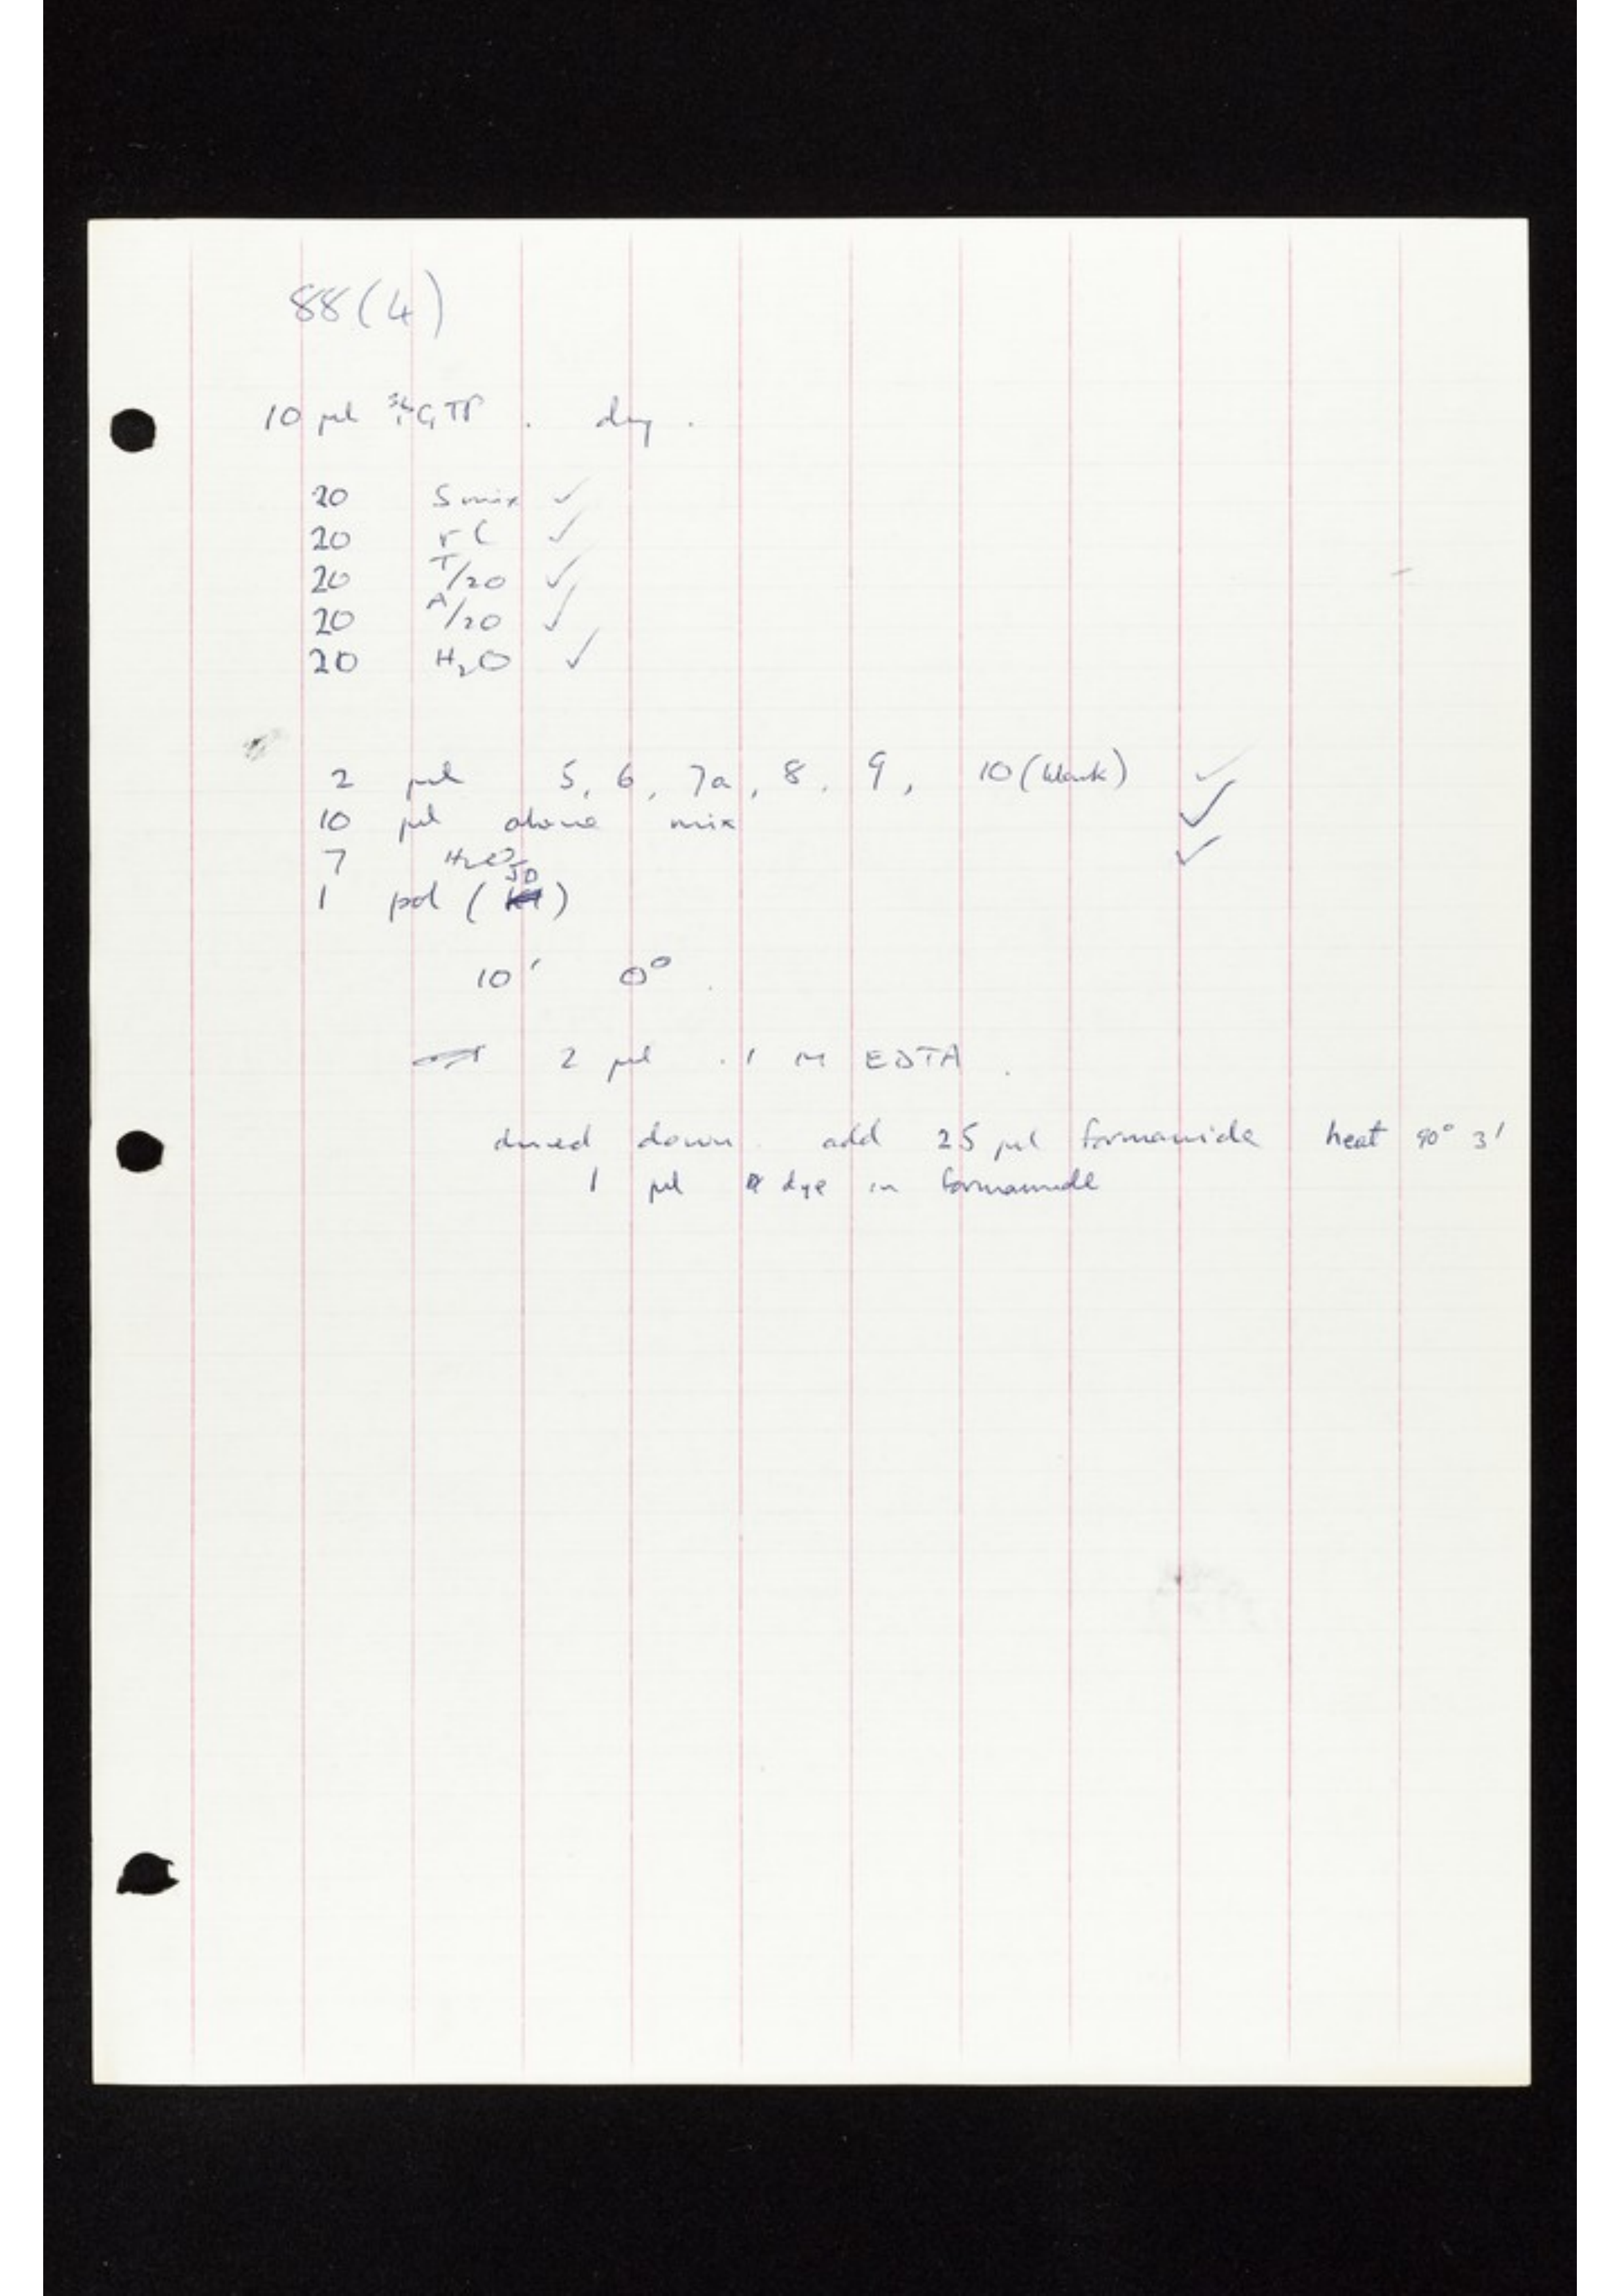 88(4)
10 µl ³²GTP . dry .
20 5 mix ✓
20 rC ✓
20 T/20 ✓
20 A/20 ✓
20 H₂O ✓
2 µl 5, 6, 7a, 8, 9, 10 (blank) ✓
10 µl above mix ✓
7 H₂O ✓
JD
1 pol ( )
10' 0°.
2 µl .1 M EDTA .
dried down. add 25 µl formamide heat 90° 3'
1 µl dye in formamide